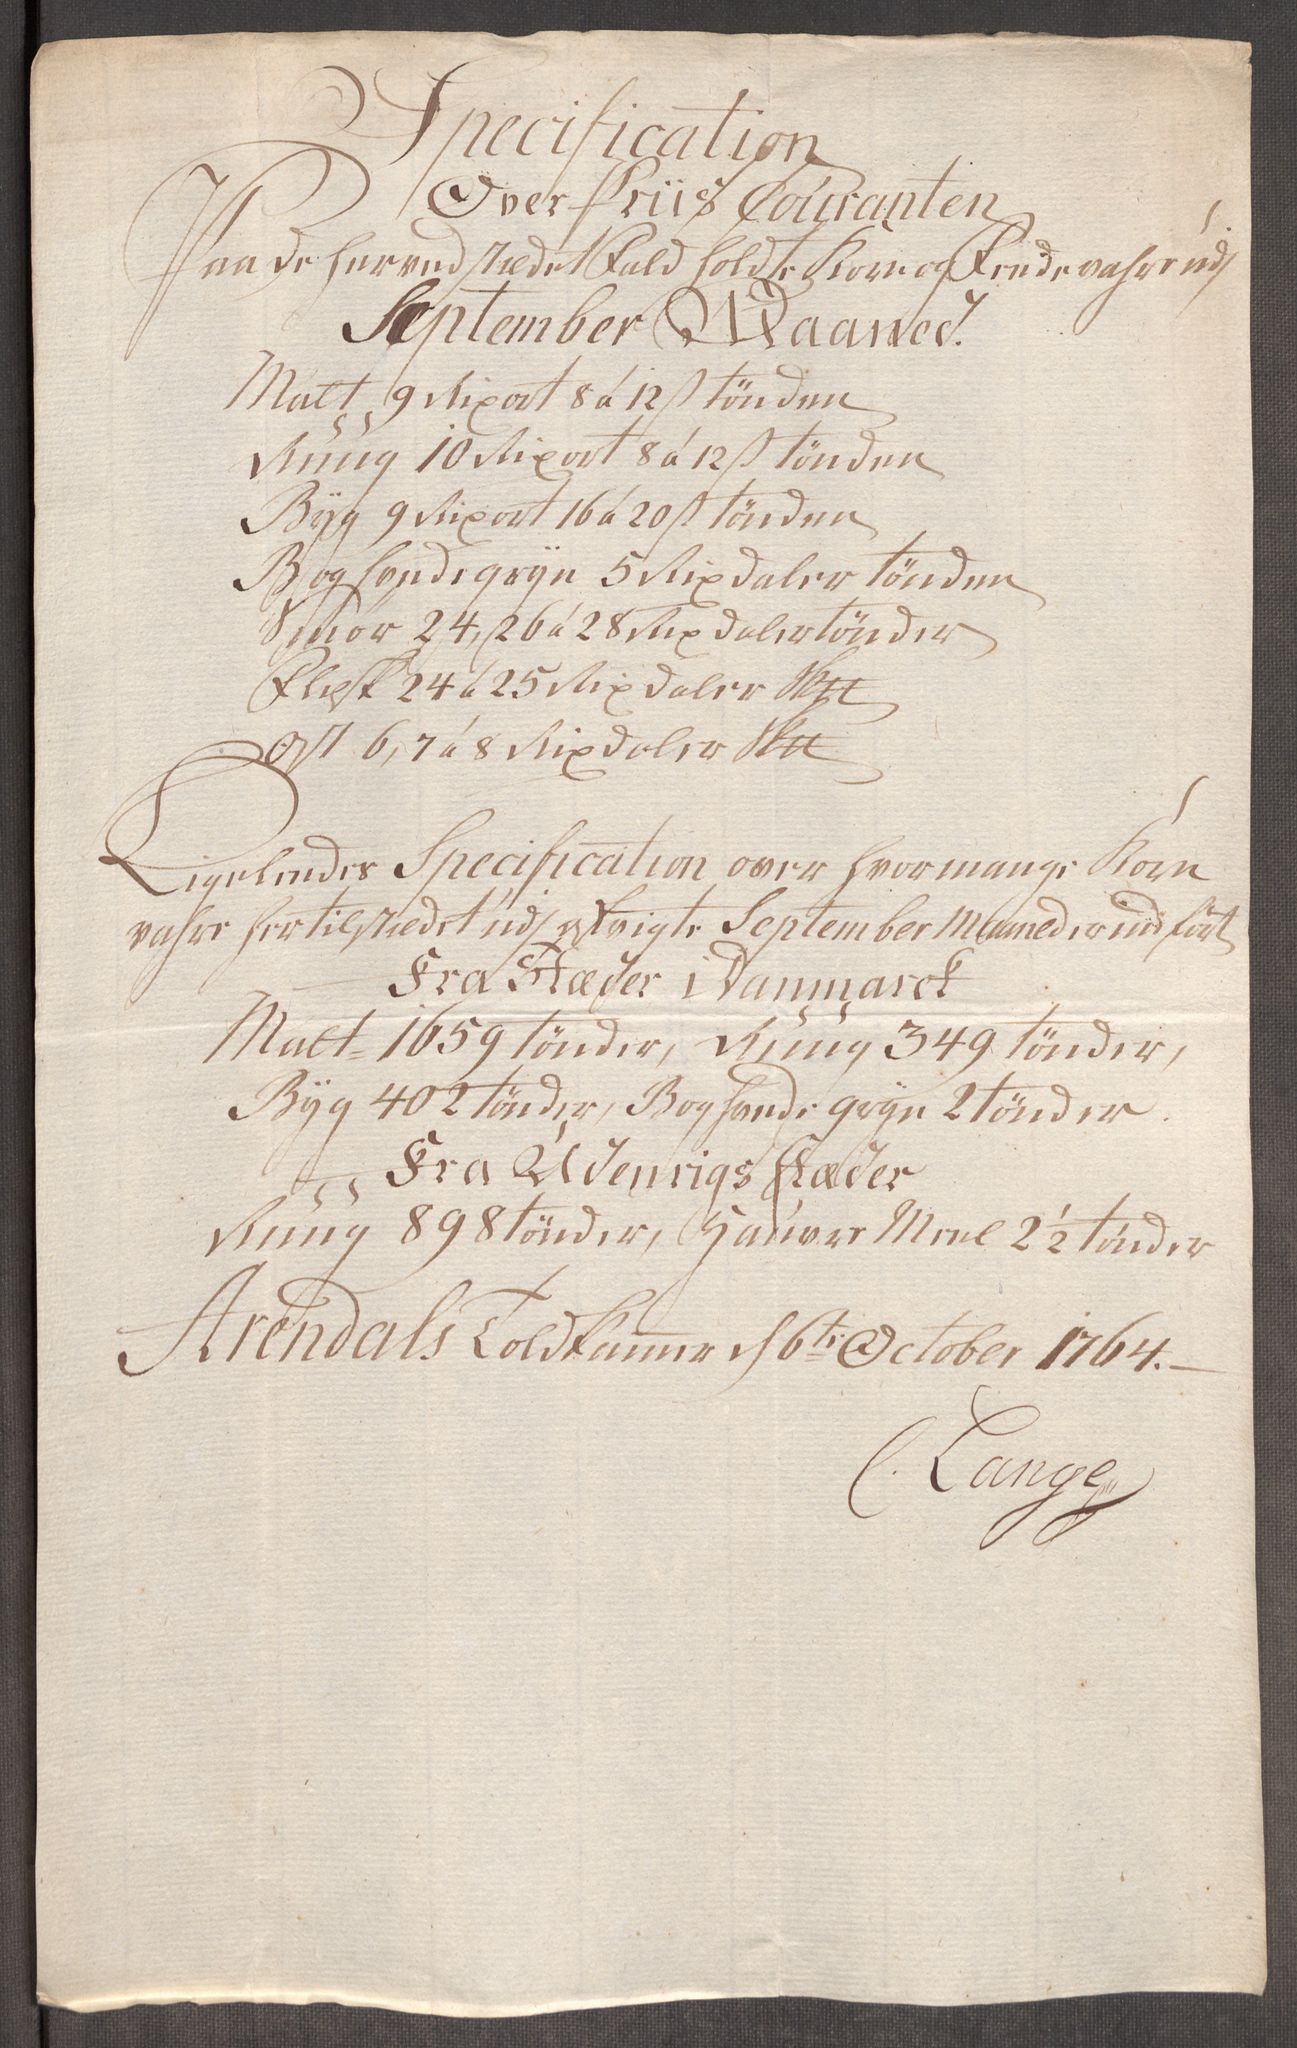 Specification
Over Priis Couranten
Paa de her ved stædet fald holdte Korn og Fede vahre udj
September Maaned.
Malt 9 Rixort 8 á 12 s tönden
Rúúg 10 Rixort 8 á 12 s tönden
Bÿg 9 Rixort 16 á 20 s tönden
Boghvede grÿn 5 Rixdaler tönden
Smör 24, 26 á 28 Rixdaler tönder
Flesk 24 á 25 Rixdaler
Ost 6, 7 á 8 Rixdaler
Ligeledes Specification over hvor mange Korn
vahre her til stædet udj afvigte September Maaned er indfört
Fra Stæder i Danmarck
Malt 1659 tönder, Rúúg 349 tönder,
Bÿg 402 tönder, Boghvede grÿn 2 tönder.
Fra Udenrigs stæder
Rúúg 898 tönder, Haúvre Meel 2 1/2 tönder
Arendals Toldkammer d 6te October 1764.
C. Lange